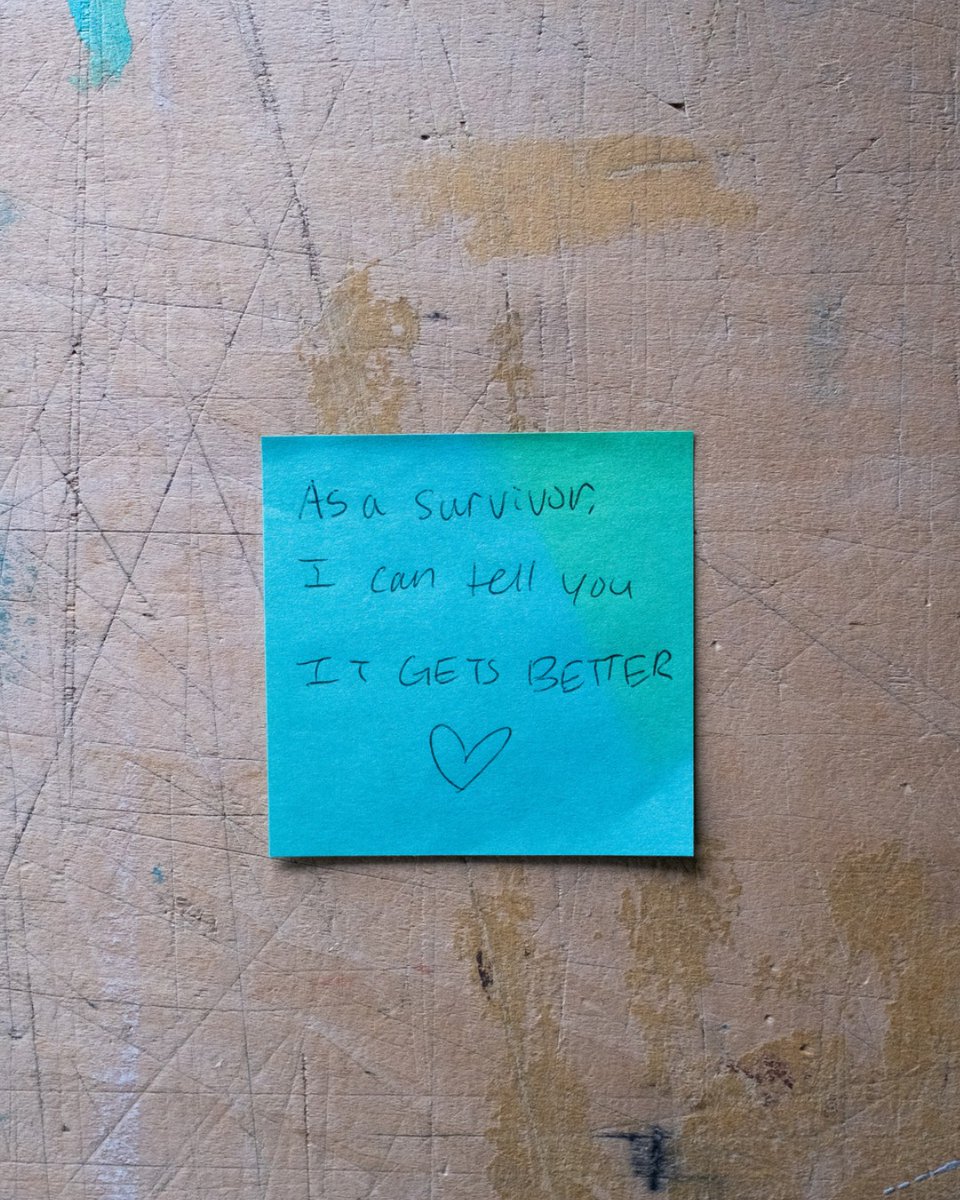 As a survivor,
I can tell you
IT GETS BETTER